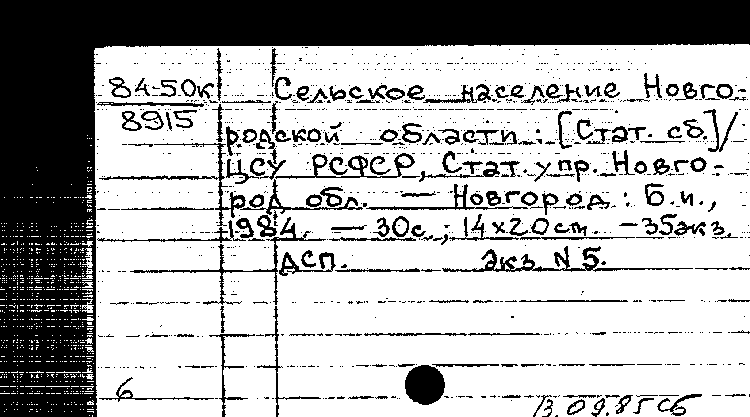 84-50к Сельское население Новго-
8915 родской области : [Стат. сб.] /
ЦСУ РСФСР, Стат. упр. Новго-
род обл. — Новгород : Б.и.,
1984. — 30с. ; 14x20cm. - 35экз.
ДСП. Экз. N 5.
6
13.09.85 сб